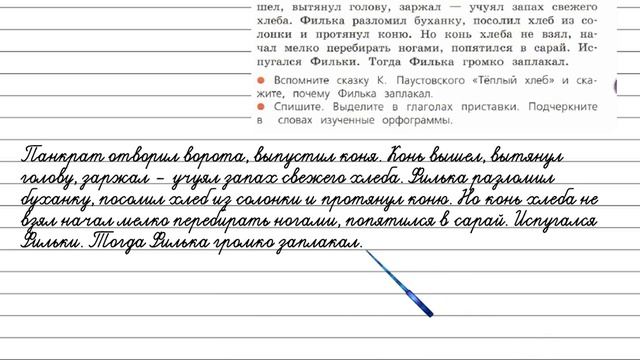 шел, вытянул голову, заржал — учуял запах свежего
хлеба. Филька разломил буханку, посолил хлеб из со-
лонки и протянул коню. Но конь хлеба не взял, на-
чал мелко перебирать ногами, попятился в сарай. Ис-
пугался Фильки. Тогда Филька громко заплакал.
● Вспомните сказку К. Паустовского «Тёплый хлеб» и ска-
жите, почему Филька заплакал.
● Спишите. Выделите в глаголах приставки. Подчеркните
в словах изученные орфограммы.
Панкрат отворил ворота, выпустил коня. Конь вышел, вытянул
голову, заржал – учуял запах свежего хлеба. Филька разломил
буханку, посолил хлеб из солонки и протянул коню. Но конь хлеба не
взял начал мелко перебирать ногами, попятился в сарай. Испугался
Фильки. Тогда Филька громко заплакал.